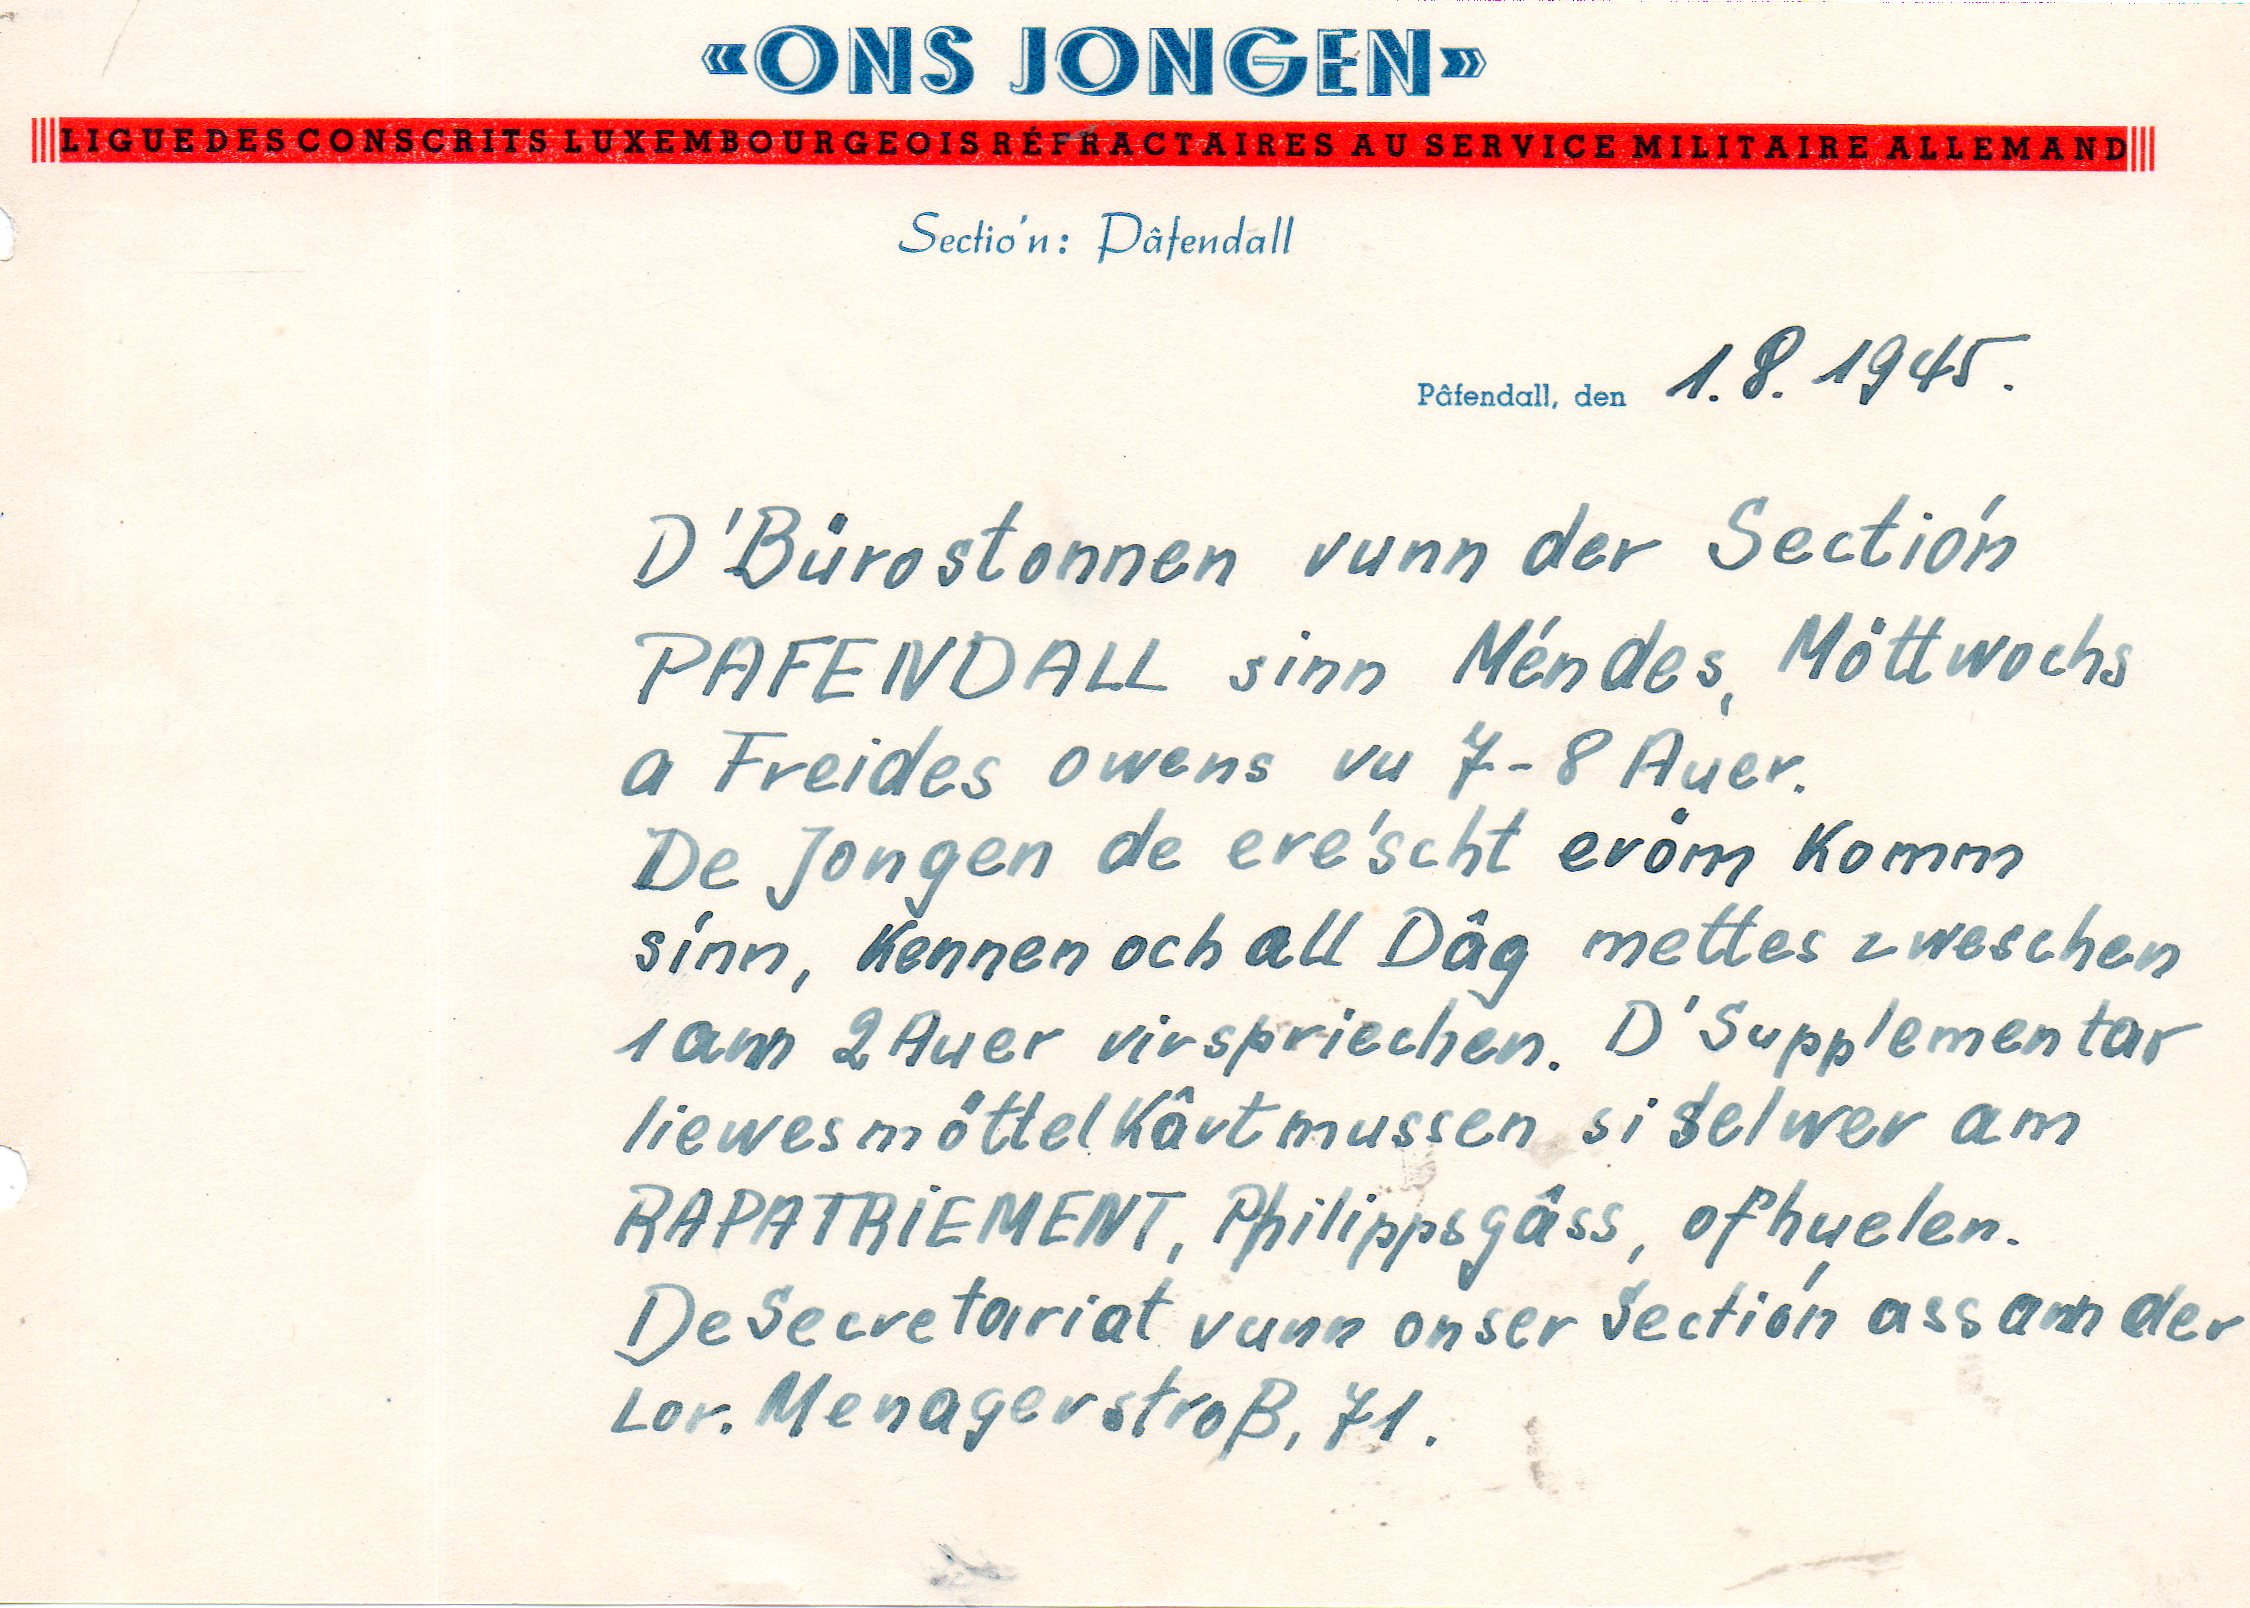 «ONS JONGEN»
LIGUE DES CONSCRITS LUXEMBOURGEOIS RÉFRACTAIRES AU SERVICE MILITAIRE ALLEMAND
Sectio'n: Pâfendall
Pâfendall, den 1.8.1945.
D'Bürostonnen vunn der Section
PAFENDALL sinn Méndes, Möttwochs
a Freides owens vu 7-8 Auer.
De Jongen de ere'scht eröm komm
sinn, kennen och all Dâg mettes zweschen
1 ann 2 Auer virspriechen. D'Supplementar
liewesmöttelkârt mussen si selwer am
RAPATRIEMENT, Philippsgâss, ofhuelen.
De Secretariat vunn onser Section ass ann der
Lor. Menagerstroß, 71.